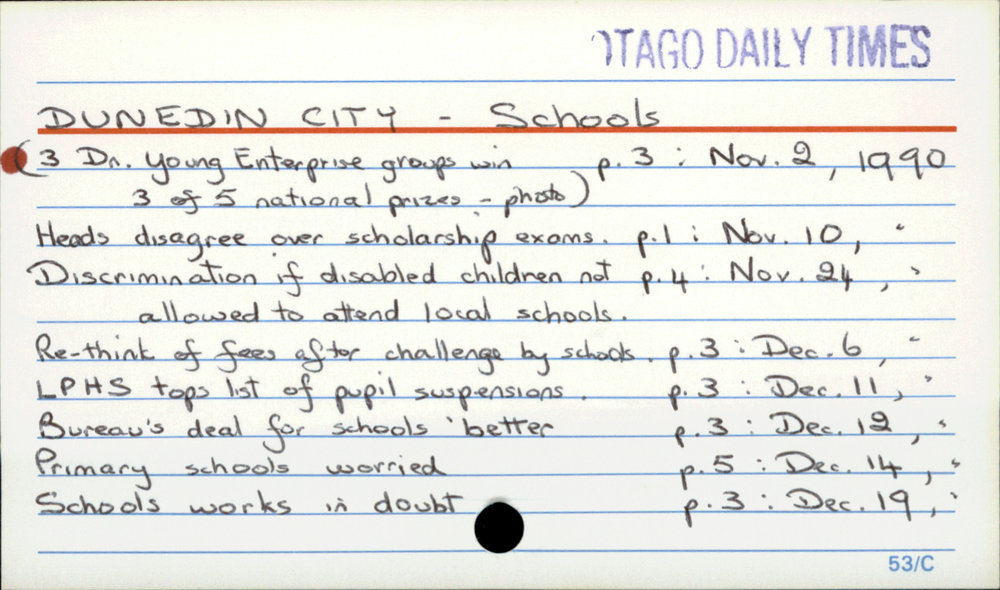 OTAGO DAILY TIMES
DUNEDIN CITY - Schools
(3 Dn. Young Enterprise groups win p.3 : Nov. 2, 1990
3 of 5 national prizes - photo)
Heads disagree over scholarship exams. p.1 : Nov. 10, "
Discrimination if disabled children not p.4 : Nov. 24, "
allowed to attend local schools.
Re-think of fees after challenge by schools. p.3 : Dec. 6, "
LPHS tops list of pupil suspensions. p.3 : Dec. 11, "
Bureau's deal for schools 'better p.3 : Dec. 12, "
Primary schools worried p.5 : Dec. 14, "
Schools works in doubt p.3 : Dec. 19, "
53/C